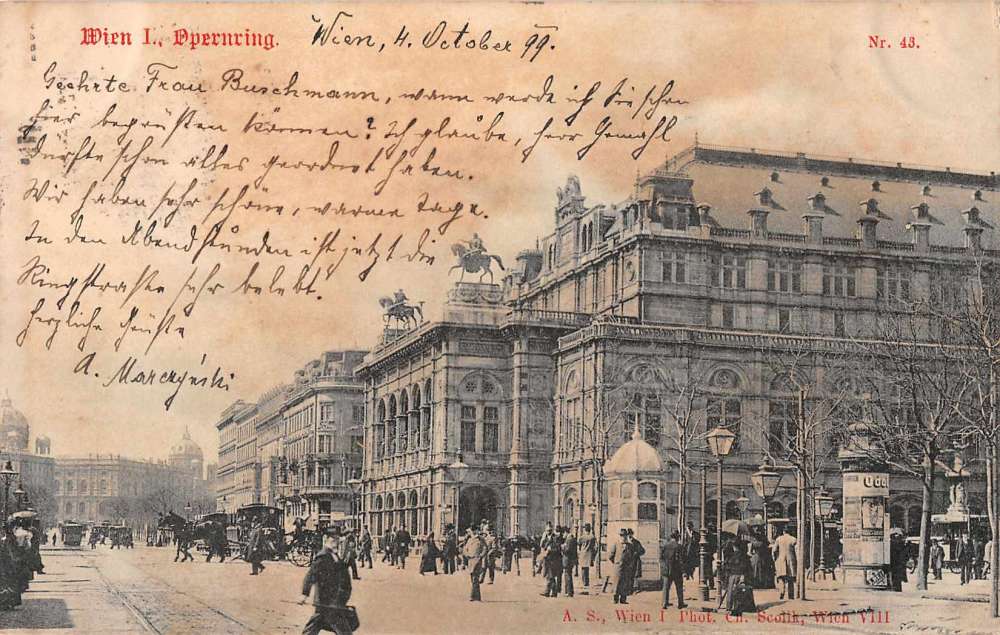 Wien I., Opernring.
Wien, 4. October 99.
Nr. 43.
Geehrte Frau Buschmann, wann werde ich Sie schon
hier begrüßen können? Ich glaube, Herr Gemahl
dürfte schon alles geordnet haben.
Wir haben sehr schöne, warme Tage.
In den Abendstunden ist jetzt die
Ringstraße sehr belebt.
Herzliche Grüße
A. Marczyński
Odol
A. S., Wien I Phot. Ch. Scolik, Wien VIII